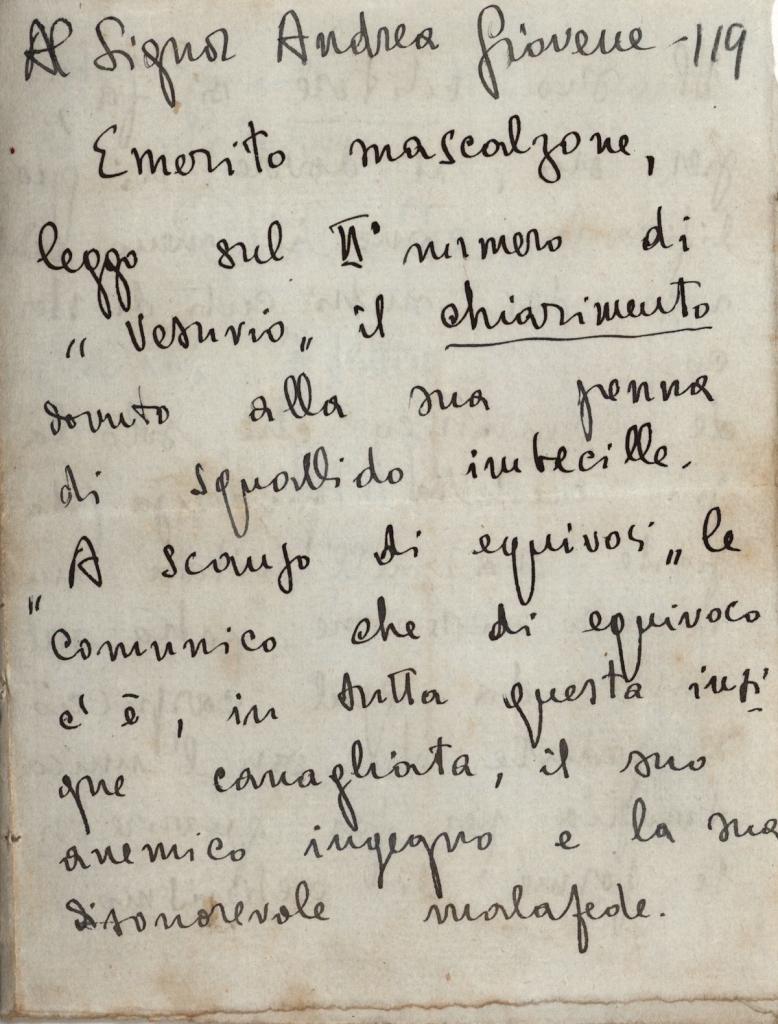 Al Signor Andrea Giovene - 119
Emerito mascalzone,
leggo sul II° numero di
"Vesuvio„ il chiarimento
dovuto alla sua penna
di squallido imbecille.
"A scanso di equivoci„ le
comunico che di equivoco
c'è, in tutta questa insi
gne canagliata, il suo
anemico ingegno e la sua
disonorevole malafede.